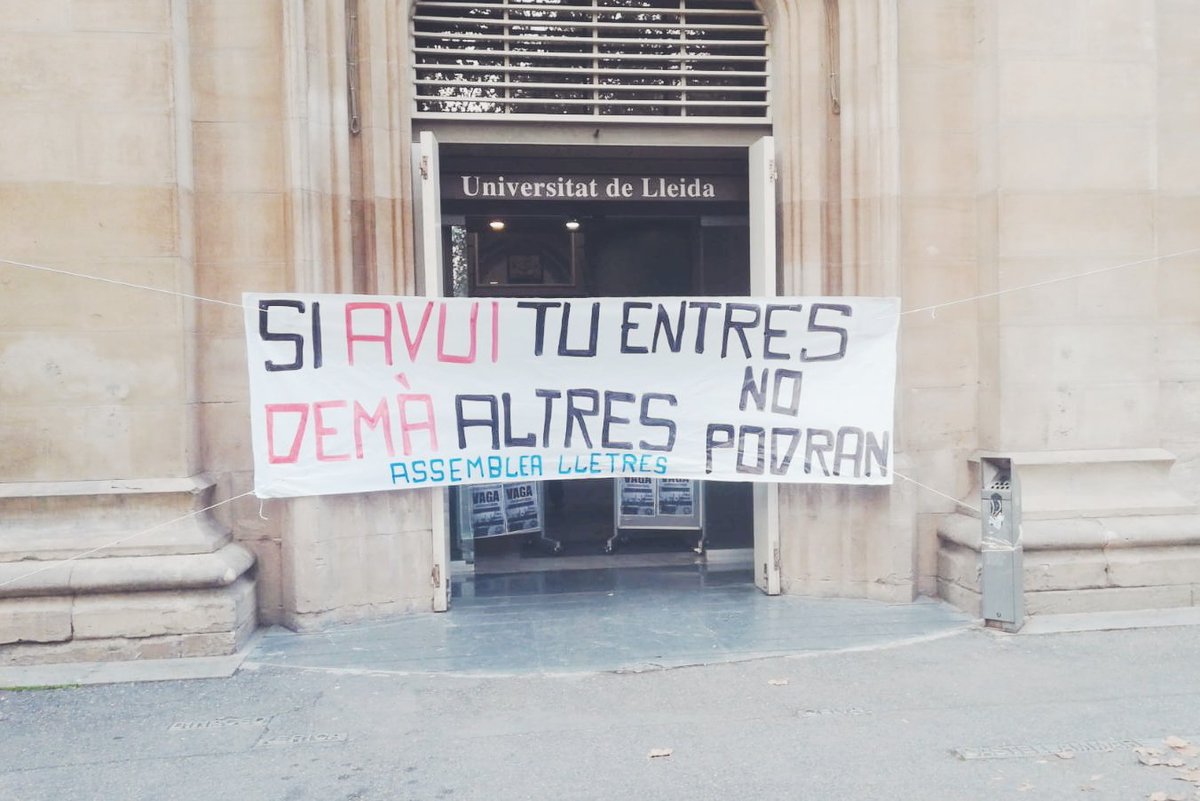 Universitat de Lleida
SI AVUI TU ENTRES
DEMÀ ALTRES NO
PODRAN
ASSEMBLEA LLETRES
VAGA VAGA
VAGA VAGA